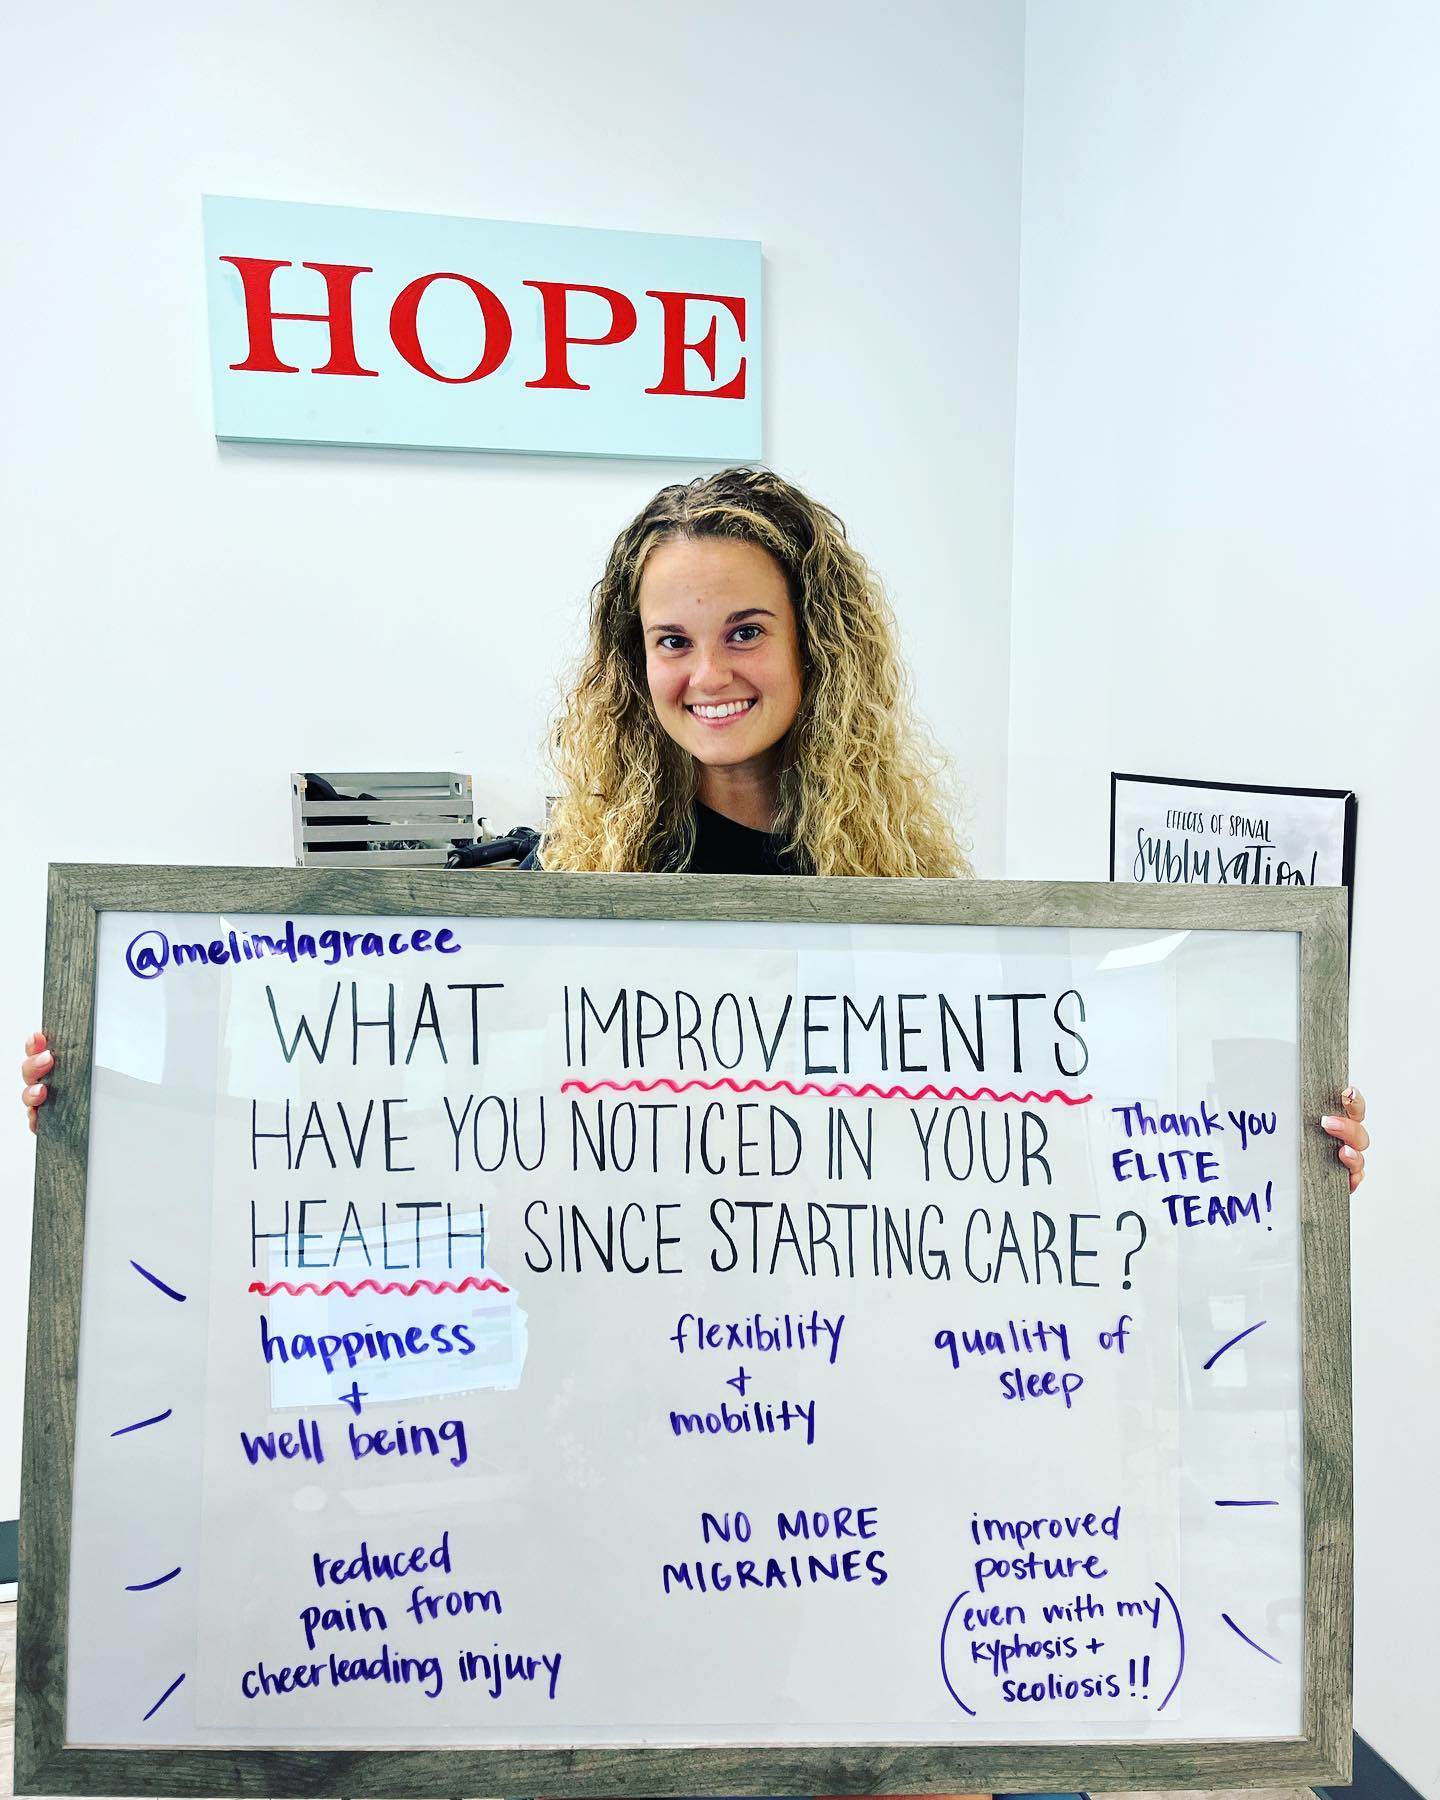 HOPE
EFFECTS OF SPINAL
subluxation
@melindagracee
WHAT IMPROVEMENTS
HAVE YOU NOTICED IN YOUR
HEALTH SINCE STARTING CARE?
Thank you
ELITE
TEAM!
happiness
+
well being
flexibility
+
mobility
quality of
sleep
reduced
pain from
cheerleading injury
NO MORE
MIGRAINES
improved
posture
(even with my
kyphosis +
scoliosis!!)